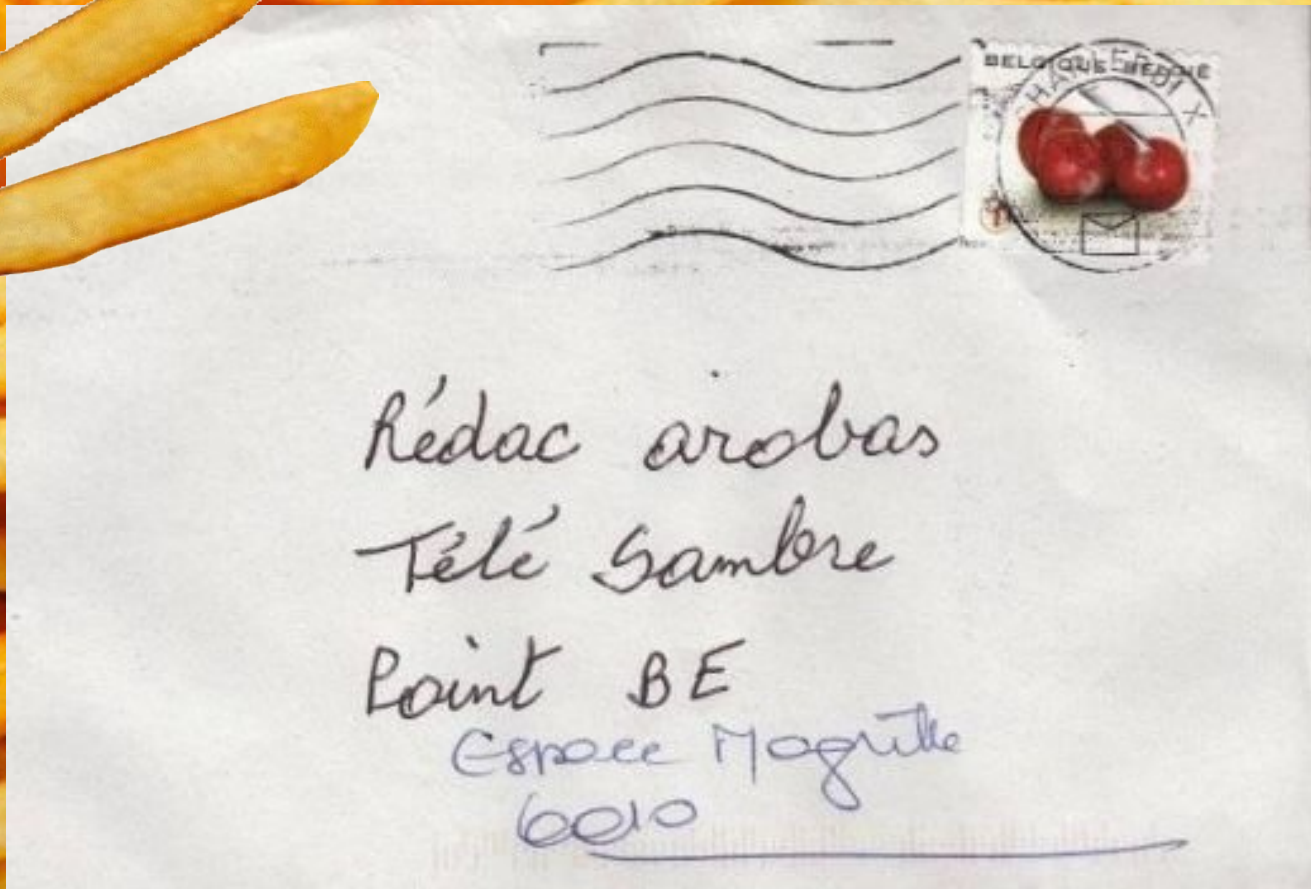 BELGIQUE BELGIË
Rédac arobas
Télé Sambre
Point BE
Espace Magritte
6010